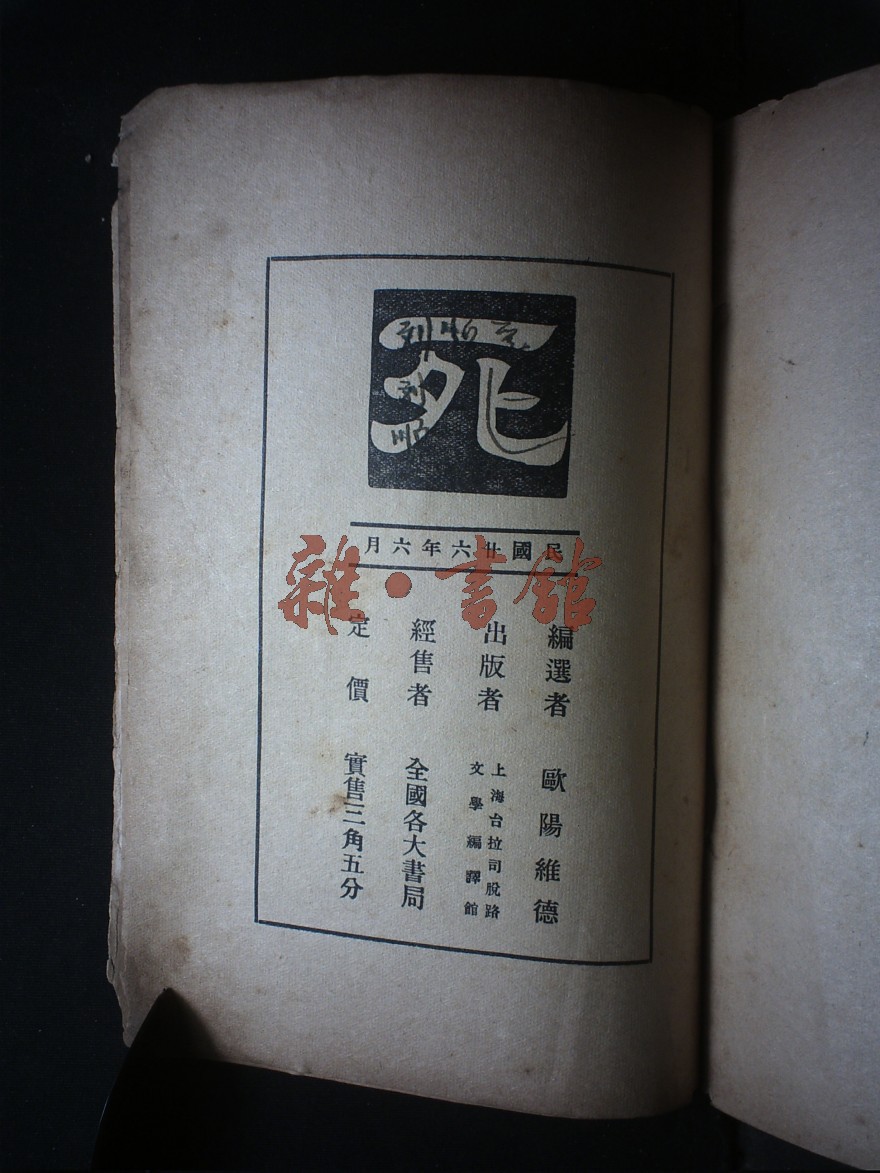 死
月六年六廿國民
編選者 歐陽維德
出版者 上海台拉司脫路
文學編譯館
經售者 全國各大書局
定價 實售三角五分
雜·書館